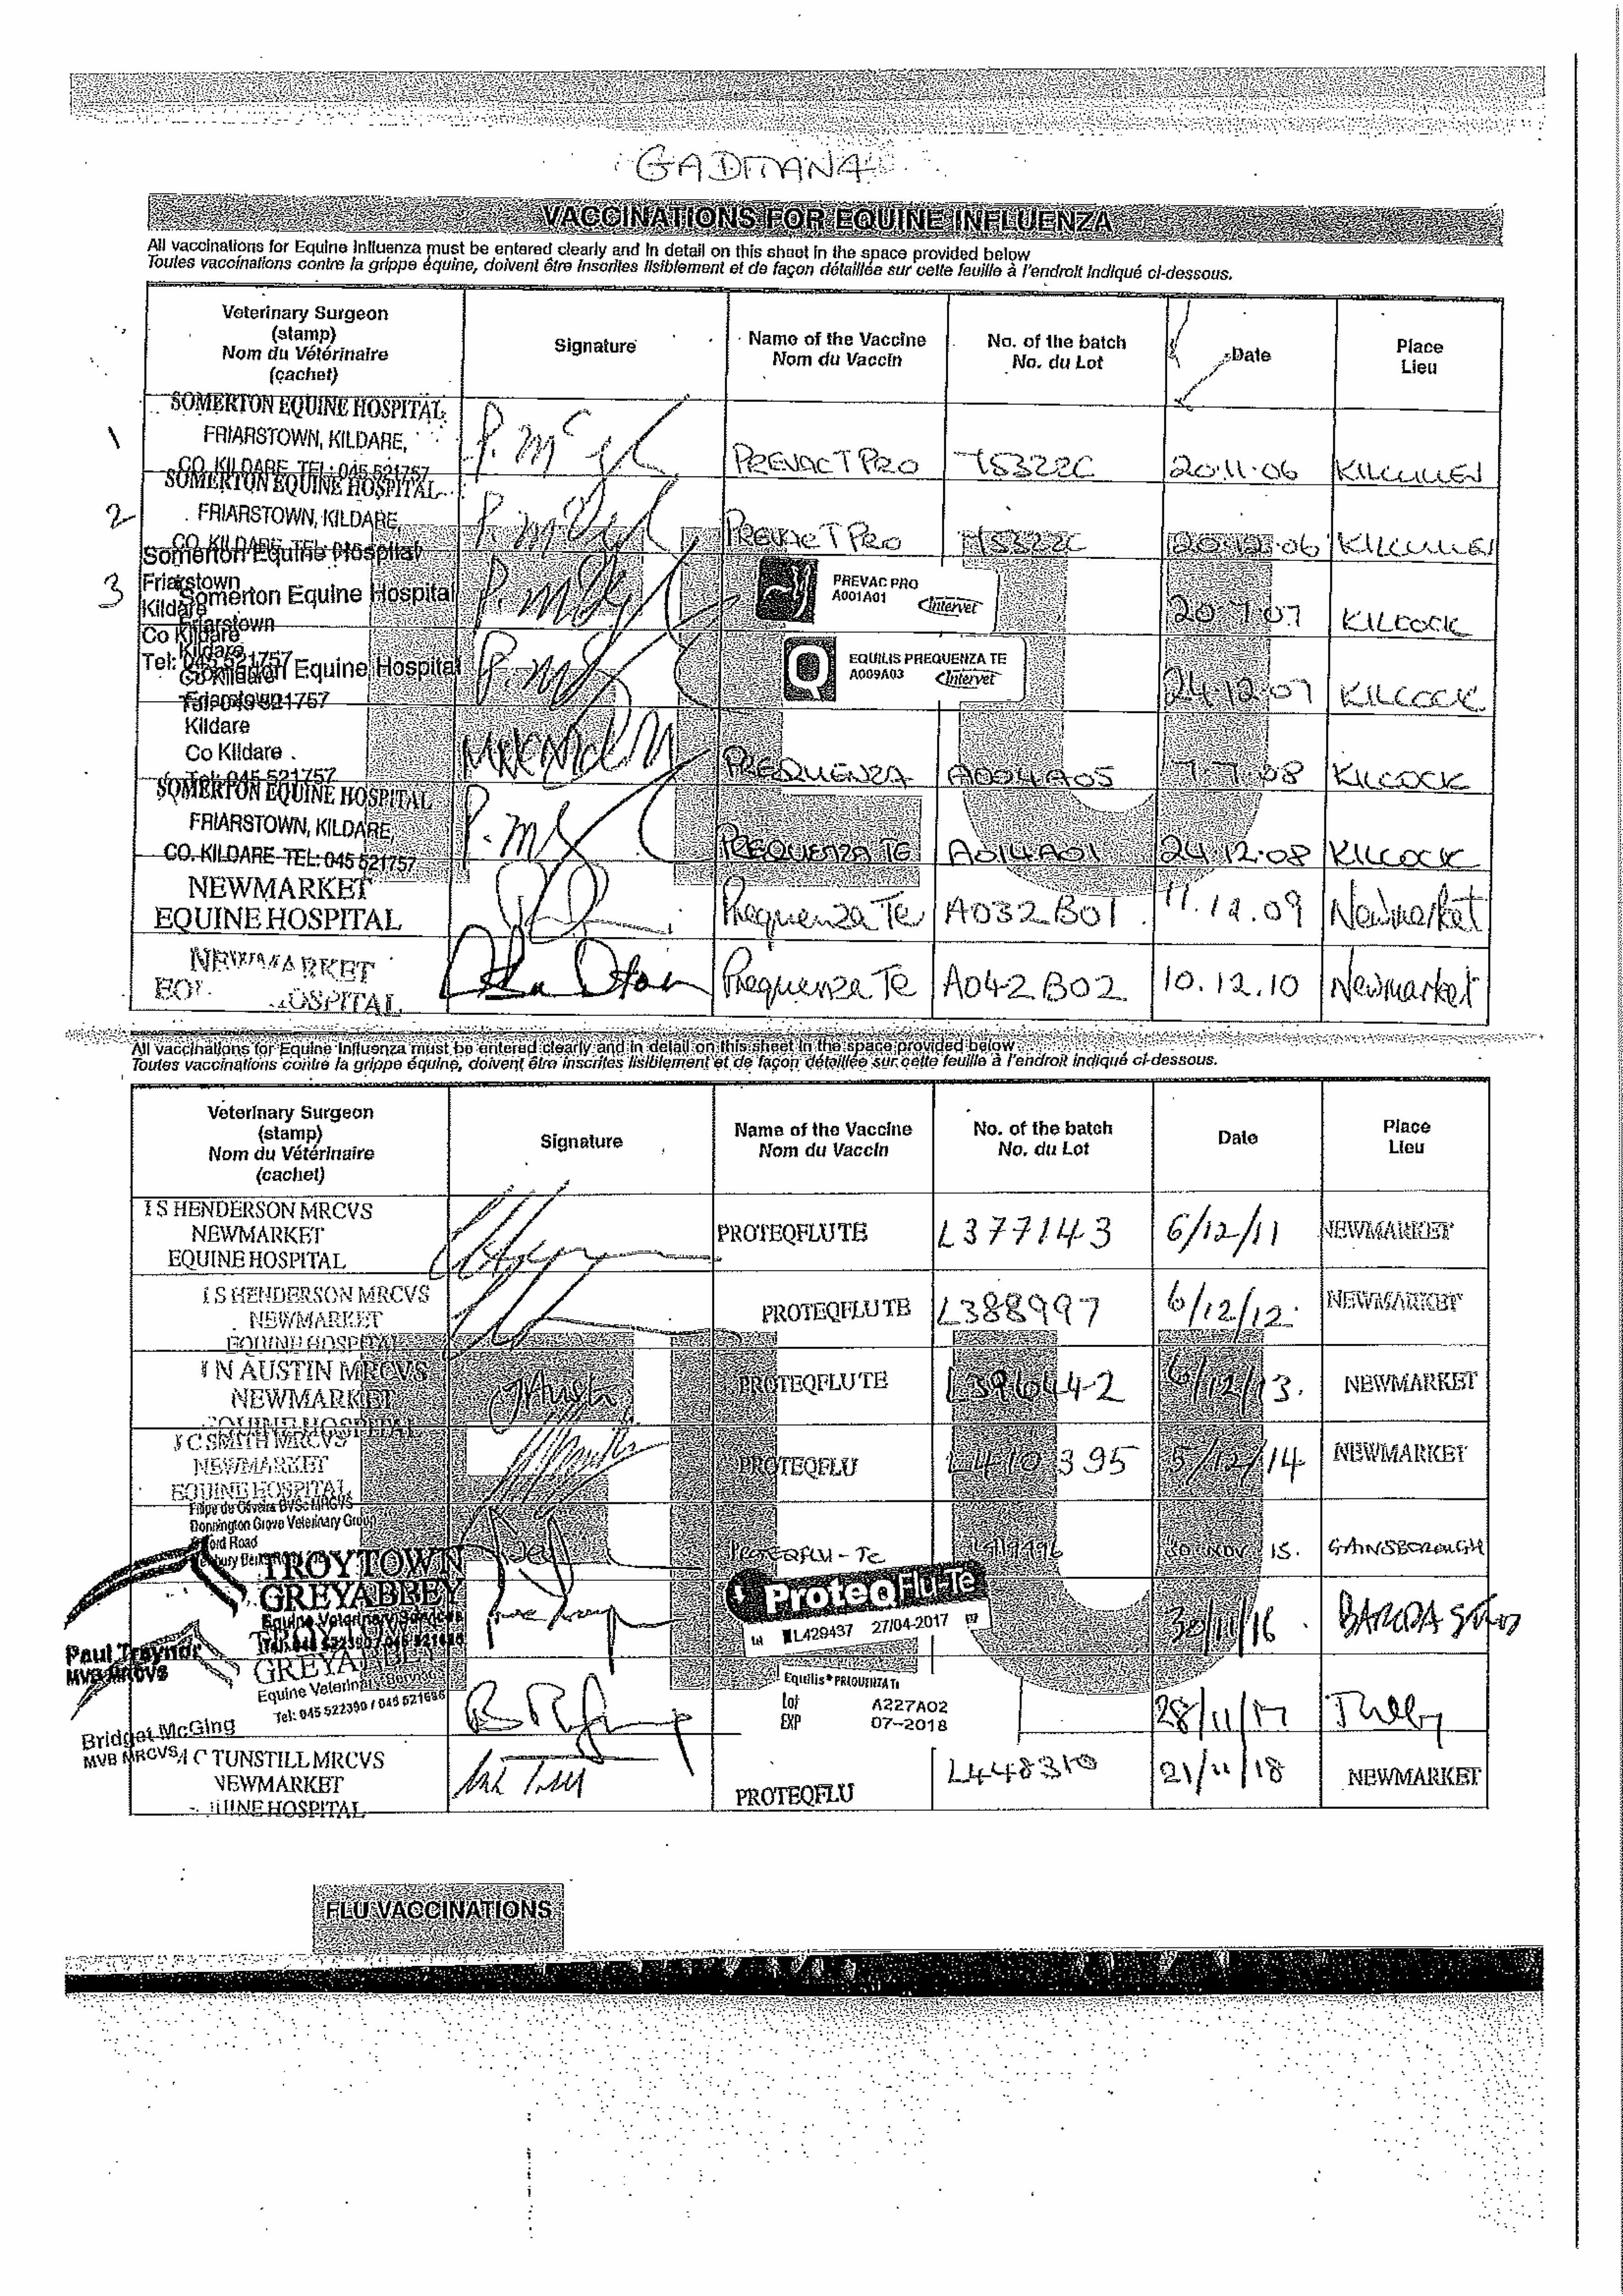 GADITANA
VACCINATIONS FOR EQUINE INFLUENZA
All vaccinations for Equine Influenza must be entered clearly and in detail on this sheet in the space provided below
Toutes vaccinations contre la grippe équine, doivent être inscrites lisiblement et de façon détaillée sur cette feuille à l'endroit indiqué ci-dessous.
Veterinary Surgeon (stamp) Nom du Vétérinaire (cachet) Signature Name of the Vaccine Nom du Vaccin No. of the batch No. du Lot Date Place Lieu
1 SOMERTON EQUINE HOSPITAL
FRIARSTOWN, KILDARE,
CO. KILDARE TEL: 045 521757 PREVAC T PRO 75322C 20.11.06 KILCULLEN
2 SOMERTON EQUINE HOSPITAL
FRIARSTOWN, KILDARE
CO. KILDARE TEL: PREVAC T PRO 75322C 20.12.06 KILCULLEN
3 Somerton Equine Hospital
Friarstown
Kildare
Co Kildare
Tel: 045 521757 PREVAC PRO A001A01 Intervet 20.7.07 KILCOCK
Somerton Equine Hospital
Friarstown
Kildare
Co Kildare
Tel: 045 521757 EQUILIS PREQUENZA TE A009A03 Intervet 24.12.07 KILCOCK
Somerton Equine Hospital
Friarstown
Kildare
Co Kildare
Tel: 045 521757 PREQUENZA A004A05 7.7.08 KILCOCK
SOMERTON EQUINE HOSPITAL
FRIARSTOWN, KILDARE,
CO. KILDARE TEL: 045 521757 PREQUENZA TE A014A01 24.12.08 KILCOCK
NEWMARKET
EQUINE HOSPITAL Prequenza Te A032B01 11.12.09 Newmarket
NEWMARKET
HOSPITAL Prequenza Te A042B02 10.12.10 Newmarket
FLU
All vaccinations for Equine Influenza must be entered clearly and in detail on this sheet in the space provided below
Toutes vaccinations contre la grippe équine, doivent être inscrites lisiblement et de façon détaillée sur cette feuille à l'endroit indiqué ci-dessous.
Veterinary Surgeon (stamp) Nom du Vétérinaire (cachet) Signature Name of the Vaccine Nom du Vaccin No. of the batch No. du Lot Date Place Lieu
I S HENDERSON MRCVS
NEWMARKET
EQUINE HOSPITAL PROTEQFLU TE L377143 6/12/11 NEWMARKET
I S HENDERSON MRCVS
NEWMARKET
EQUINE HOSPITAL PROTEQFLU TE L388997 6/12/12. NEWMARKET
N AUSTIN MRCVS
NEWMARKET
EQUINE HOSPITAL PROTEQFLU TE L396442 6/12/13. NEWMARKET
J C SMITH MRCVS
NEWMARKET
EQUINE HOSPITAL PROTEQFLU L410395 5/12/14 NEWMARKET
Donnington Grove Veterinary Group
Oxford Road
PROTEQFLU - Te 30 NOV 15. GAINSBOROUGH
TROYTOWN
GREYABBEY
Equine Veterinary Services
Paul Traynor
MVB MRCVS ProteqFlu-Te L429437 27/04-2017 30/11/16
TROYTOWN
GREYABBEY
Equine Veterinary Services
Tel: 045 522390 / 045 521686
Bridget McGing
MVB MRCVS Equilis PREQUENZA Te
Lot A227A02
EXP 07-2018 28/11/17 Tully
C TUNSTILL MRCVS
NEWMARKET
EQUINE HOSPITAL PROTEQFLU L448310 21/11/18 NEWMARKET
FLU
FLU VACCINATIONS